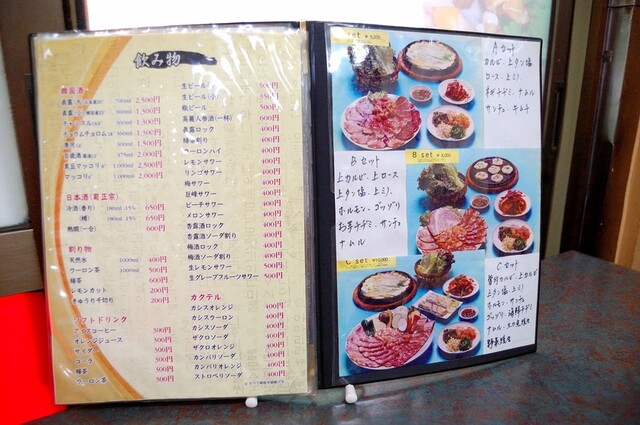 飲み物
韓国酒
真露
700ml 2,500円
1,300円
チャミスル 1,300円
チョウムチョロム 1,300円
1,300円
百歳酒 375ml 2,000円
黒豆マッコリ 1,000ml 2,500円
マッコリ 1,000ml 2,000円
日本酒(菊正宗)
冷酒(香り) 190ml 15% 650円
(樽) 190ml 15% 650円
熱燗(一合) 600円
割り物
天然水 1000ml 400円
ウーロン茶 1000ml 500円
梅茶 600円
レモンカット 200円
きゅうり千切り 200円
ソフトドリンク
アイスコーヒー 300円
オレンジジュース 300円
サイダー 300円
コーラ 300円
梅茶 300円
ウーロン茶 300円
生ビール 500円
生ビール(小) 350円
瓶ビール 500円
高麗人参酒(一杯) 600円
真露ロック 400円
焼酎割り 400円
ウーロンハイ 400円
レモンサワー 400円
リンゴサワー 400円
梅サワー 400円
巨峰サワー 400円
ピーチサワー 400円
メロンサワー 400円
杏露酒ロック 400円
杏露酒ソーダ割り 400円
梅酒ロック 400円
梅酒ソーダ割り 400円
生レモンサワー 450円
生グレープフルーツサワー 450円
カクテル
カシスオレンジ 400円
カシスウーロン 400円
カシスソーダ 400円
ザクロソーダ 400円
ザクロオレンジ 400円
カンパリソーダ 400円
カンパリオレンジ 400円
ストロベリソーダ 400円
set
Aセット
カルビ、上タン塩
ロース、上ミノ
ネギチヂミ、ナムル
サンチュ、キムチ
Bセット
上カルビ、上ロース
上タン塩、上ミノ、
ホルモン、コッソリ
お茶チヂミ、サンチュ
ナムル
B set ¥8,000
C set ¥10,000
Cセット
骨付カルビ、上カルビ
上タン塩、上ミノ
ホルモン、サンチュ
コッソリ、海鮮チヂミ
ナムル
野菜焼